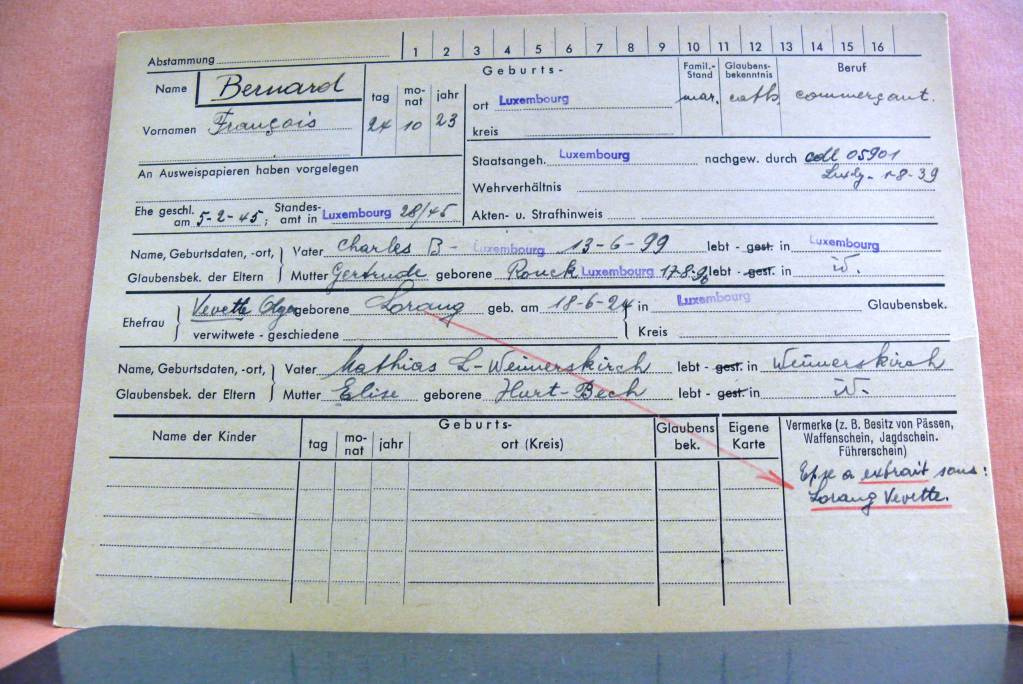 Abstammung 1 2 3 4 5 6 7 8 9 10 11 12 13 14 15 16
Name Bernard
Vornamen François
tag mo-nat jahr
24 10 23
Geburts-
ort Luxembourg
kreis
Famil.-Stand
mar.
Glaubens-bekenntnis
cath.
Beruf
commerçant.
An Ausweispapieren haben vorgelegen
Staatsangeh. Luxembourg nachgew. durch cdl 05901
Luxbg. 1-8-39
Wehrverhältnis
Ehe geschl. am 5-2-45; Standes-amt in Luxembourg 28/45
Akten- u. Strafhinweis
Name, Geburtsdaten, -ort, Vater Charles B- Luxembourg 13-6-99 lebt - gest. in Luxembourg
Glaubensbek. der Eltern Mutter Gertrude geborene Rouck Luxembourg 17-8- lebt - gest. in
Ehefrau
Vevette Olga geborene Lorang geb. am 18-6-24 in Luxembourg Glaubensbek.
verwitwete - geschiedene Kreis
Name, Geburtsdaten, -ort, Vater Mathias L-Weimerskirch lebt - gest. in Weimerskirch
Glaubensbek. der Eltern Mutter Elise geborene Hurt-Bech lebt - gest. in
Name der Kinder
Geburts-
tag mo-nat jahr ort (Kreis)
Glaubens bek.
Eigene Karte
Vermerke (z. B. Besitz von Pässen,
Waffenschein, Jagdschein.
Führerschein)
a extrait sous:
Lorang Vevette.